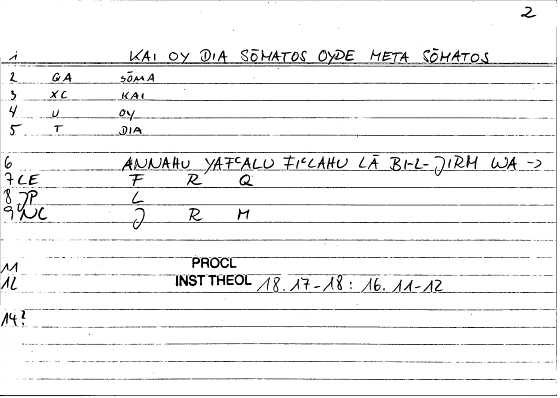 2
1 KAI OY DIA SŌMATOS OYDE META SŌMATOS
2 QA SŌMA
3 XC KAI
4 U OY
5 T DIA
6 ANNAHU YAFᶜALU FIᶜLAHU LĀ BI-L-JIRM WA ->
7 LE F R Q
8 JP L
9 NC J R M
11 PROCL
12 INST THEOL 18.17-18: 16.11-12
14?